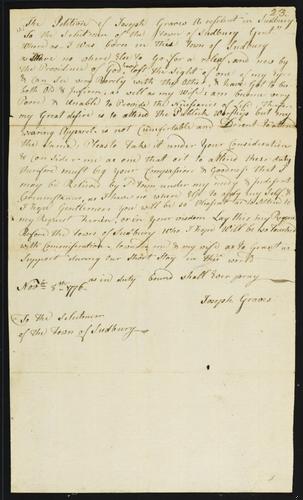 23
The Petition of Joseph Graves A resident in Sudbury
To the Selectmen of the Town of Sudbury Gent<sup>n</sup>
Whereas I was born in this Town of Sudbury
& Have no where Else to Go for a relief and now by
the Providence of God, lost the Sight of one of my eyes
& Can See but Barely with the Other & have Got to be
both Old & Infirm, as well as my Wife, am become very
Poor & Unable to Provide the Necessaries of Life
my Great desire is to attend the Publick Worship but my
wearing Apparel is not Comfortable and Decent to attend
the Same. Please to take it under Your Consideration
& Consider me as one that ort to attend there duty
therefore must beg your Compassion & Goodness that I
may be Relieved by Town under my needy & present
Circumstances, as I have no where Else to apply my Self &
I hope Gentlemen you will be so Pleased as to Attend to
my Request herein, or in Your wisdom Lay this my Request
Before the town of Sudbury Who I hope Will be so touched
with Commiseration towards me & my wife as to Grant us
Support during our Short Stay in this world
as in duty bound shall Ever pray
Nov<sup>r</sup> 5<sup>th</sup> 1776
Joseph Graves
To the Selectmen
of the Town of Sudbury